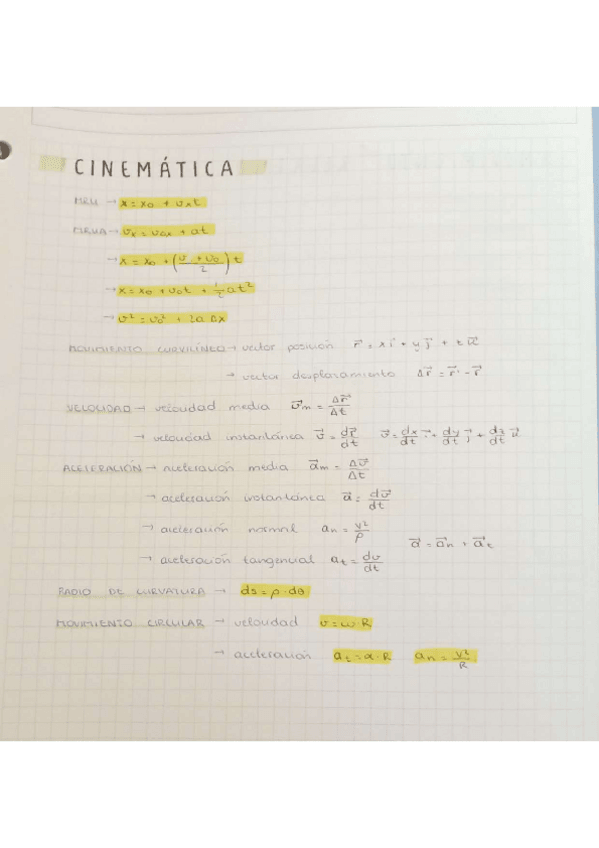 CINEMÁTICA
MRU → x = x₀ + vₓt
MRUA → vₓ = v₀ₓ + at
→ x = x₀ + ((v + v₀)/2) t
→ x = x₀ + v₀t + 1/2 at²
→ v² = v₀² + 2a Δx
MOVIMIENTO CURVILÍNEO → vector posición r⃗ = x i⃗ + y j⃗ + z k⃗
→ vector desplazamiento Δr⃗ = r⃗' - r⃗
VELOCIDAD → velocidad media v⃗ₘ = Δr⃗/Δt
→ velocidad instantánea v⃗ = dr⃗/dt v⃗ = dx/dt i⃗ + dy/dt j⃗ + dz/dt k⃗
ACELERACIÓN → aceleración media a⃗ₘ = Δv⃗/Δt
→ aceleración instantánea a⃗ = dv⃗/dt
→ aceleración normal aₙ = v²/ρ
a⃗ = a⃗ₙ + a⃗ₜ
→ aceleración tangencial aₜ = dv/dt
RADIO DE CURVATURA → ds = ρ · dθ
MOVIMIENTO CIRCULAR → velocidad v = ω · R
→ aceleración aₜ = α · R aₙ = v²/R